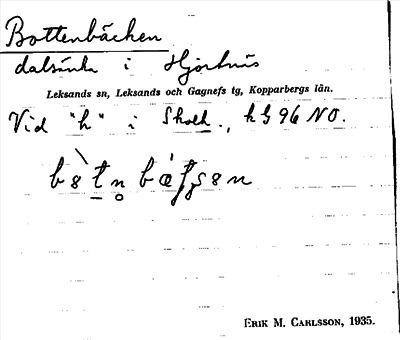 Bottenbäcken
dalsänka i Hjortnäs
Leksands sn, Leksands och Gagnefs tg, Kopparbergs län.
Vid "h" i Skolh., kG 96 NO.
ERIK M. CARLSSON, 1935.